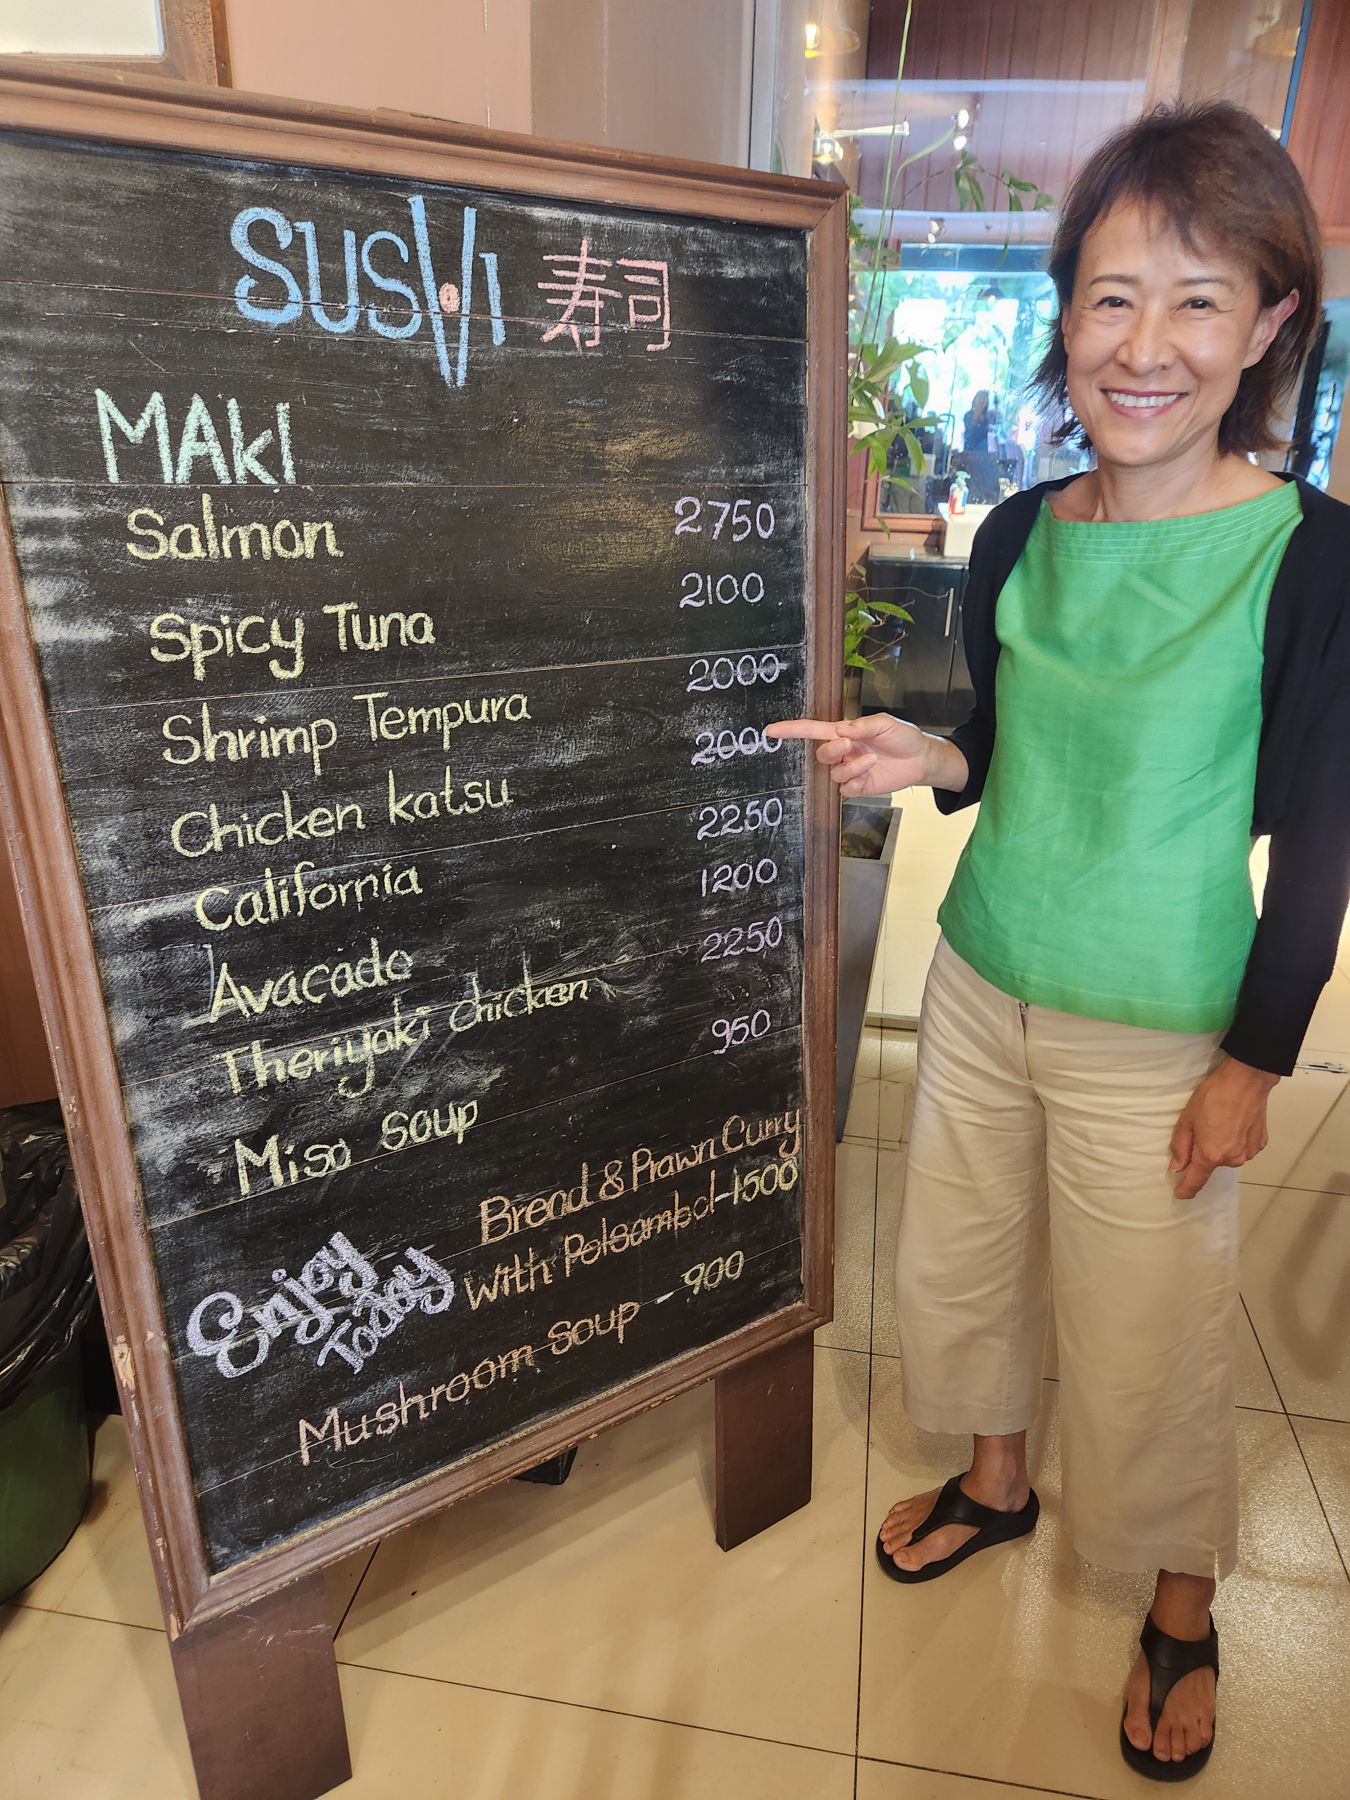 SUSHI 寿司
MAkI
Salmon 2750
Spicy Tuna 2100
Shrimp Tempura 2000
Chicken katsu 2000
California 2250
Avacado 1200
Theriyaki chicken 2250
Miso soup 950
Enjoy Today
Bread & Prawn Curry
with Polsambol-1500
Mushroom Soup - 900